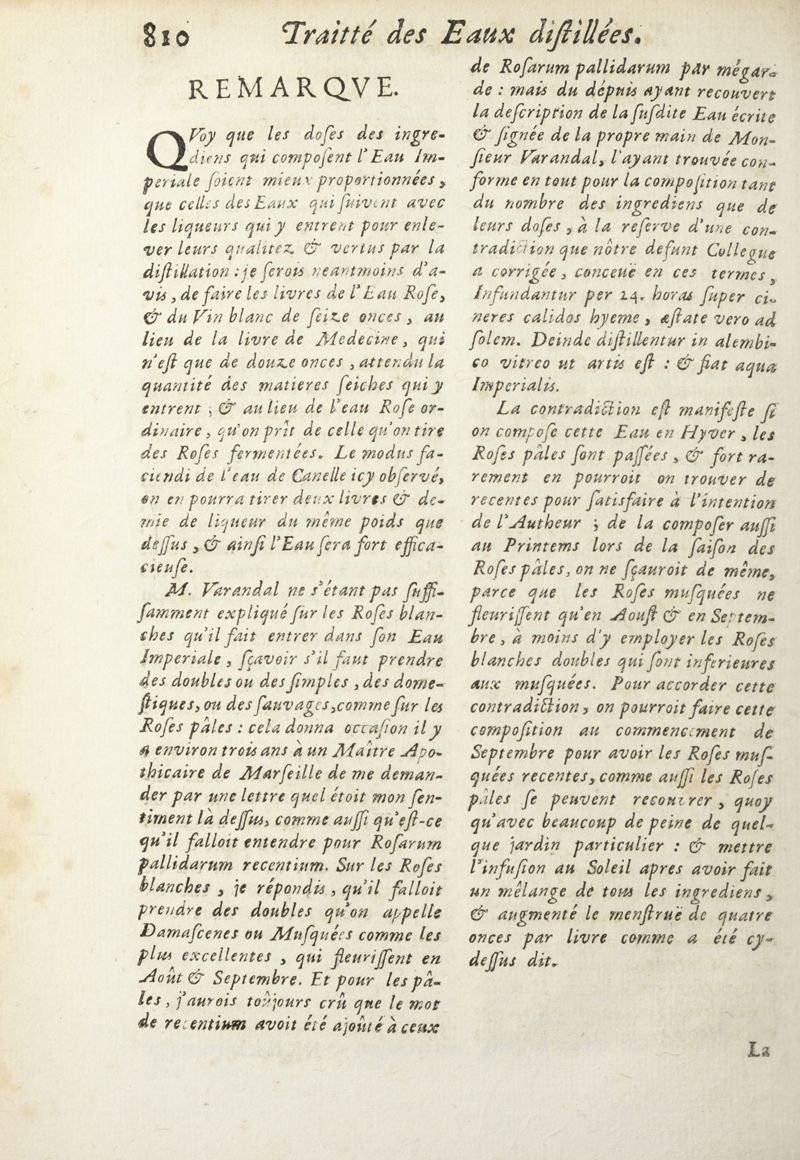 810 Traitté des Eaux diſtillées.
REMARQVE.
QVoy que les doſes des ingre-
diens qui compoſent l'Eau Im-
periale ſoient mieux proportionnées,
que celles des Eaux qui ſuivent avec
les liqueurs qui y entrent pour enle-
ver leurs qualitez & vertus par la
diſtillation : je ſerois neantmoins d'a-
vis, de faire les livres de l'Eau Roſe,
& du Vin blanc de ſeize onces, au
lieu de la livre de Medecine, qui
n'eſt que de douze onces, attendu la
quantité des matieres ſeiches qui y
entrent ; & au lieu de l'eau Roſe or-
dinaire, qu'on prît de celle qu'on tire
des Roſes fermentées. Le modus fa-
ciendi de l'eau de Canelle icy obſervé,
on en pourra tirer deux livres & de-
mie de liqueur du même poids que
deſſus, & ainſi l'Eau ſera fort effica-
cieuſe.
M. Varandal ne s'étant pas ſuffi-
ſamment expliqué ſur les Roſes blan-
ches qu'il fait entrer dans ſon Eau
Imperiale, ſçavoir s'il faut prendre
des doubles ou des ſimples, des dome-
ſtiques, ou des ſauvages, comme ſur les
Roſes pâles : cela donna occaſion il y
a environ trois ans à un Maître Apo-
thicaire de Marſeille de me deman-
der par une lettre quel étoit mon ſen-
timent là deſſus, comme auſſi qu'eſt-ce
qu'il falloit entendre pour Roſarum
pallidarum recentium. Sur les Roſes
blanches, je répondis, qu'il falloit
prendre des doubles qu'on appelle
Damaſcenes ou Muſquées comme les
plus excellentes, qui fleuriſſent en
Août & Septembre. Et pour les pâ-
les, j'aurois toûjours crû que le mot
de recentium avoit été ajoûté à ceux
de Roſarum pallidarum par mégar-
de : mais du dépuis ayant recouvert
la deſcription de la ſuſdite Eau écrite
& ſignée de la propre main de Mon-
ſieur Varandal, l'ayant trouvée con-
forme en tout pour la compoſition tant
du nombre des ingrediens que de
leurs doſes, à la reſerve d'une con-
tradiction que nôtre defunt Collegue
a corrigée, conceuë en ces termes,
Infundantur per 24. horas ſuper ci-
neres calidos hyeme, æſtate vero ad
ſolem. Deinde diſtillentur in alembi-
co vitreo ut artis eſt : & fiat aqua
Imperialis.
La contradiction eſt manifeſte ſi
on compoſe cette Eau en Hyver, les
Roſes pâles ſont paſſées, & fort ra-
rement en pourroit on trouver de
recentes pour ſatisfaire à l'intention
de l'Autheur ; de la compoſer auſſi
au Printems lors de la ſaiſon des
Roſes pâles, on ne ſçauroit de même,
parce que les Roſes muſquées ne
fleuriſſent qu'en Aouſt & en Septem-
bre, à moins d'y employer les Roſes
blanches doubles qui ſont inferieures
aux muſquées. Pour accorder cette
contradiction, on pourroit faire cette
compoſition au commencement de
Septembre pour avoir les Roſes muſ-
quées recentes, comme auſſi les Roſes
pâles ſe peuvent recouvrer, quoy
qu'avec beaucoup de peine de quel-
que jardin particulier : & mettre
l'infuſion au Soleil apres avoir fait
un mêlange de tous les ingrediens,
& augmenté le menſtruë de quatre
onces par livre comme a été cy-
deſſus dit.
La